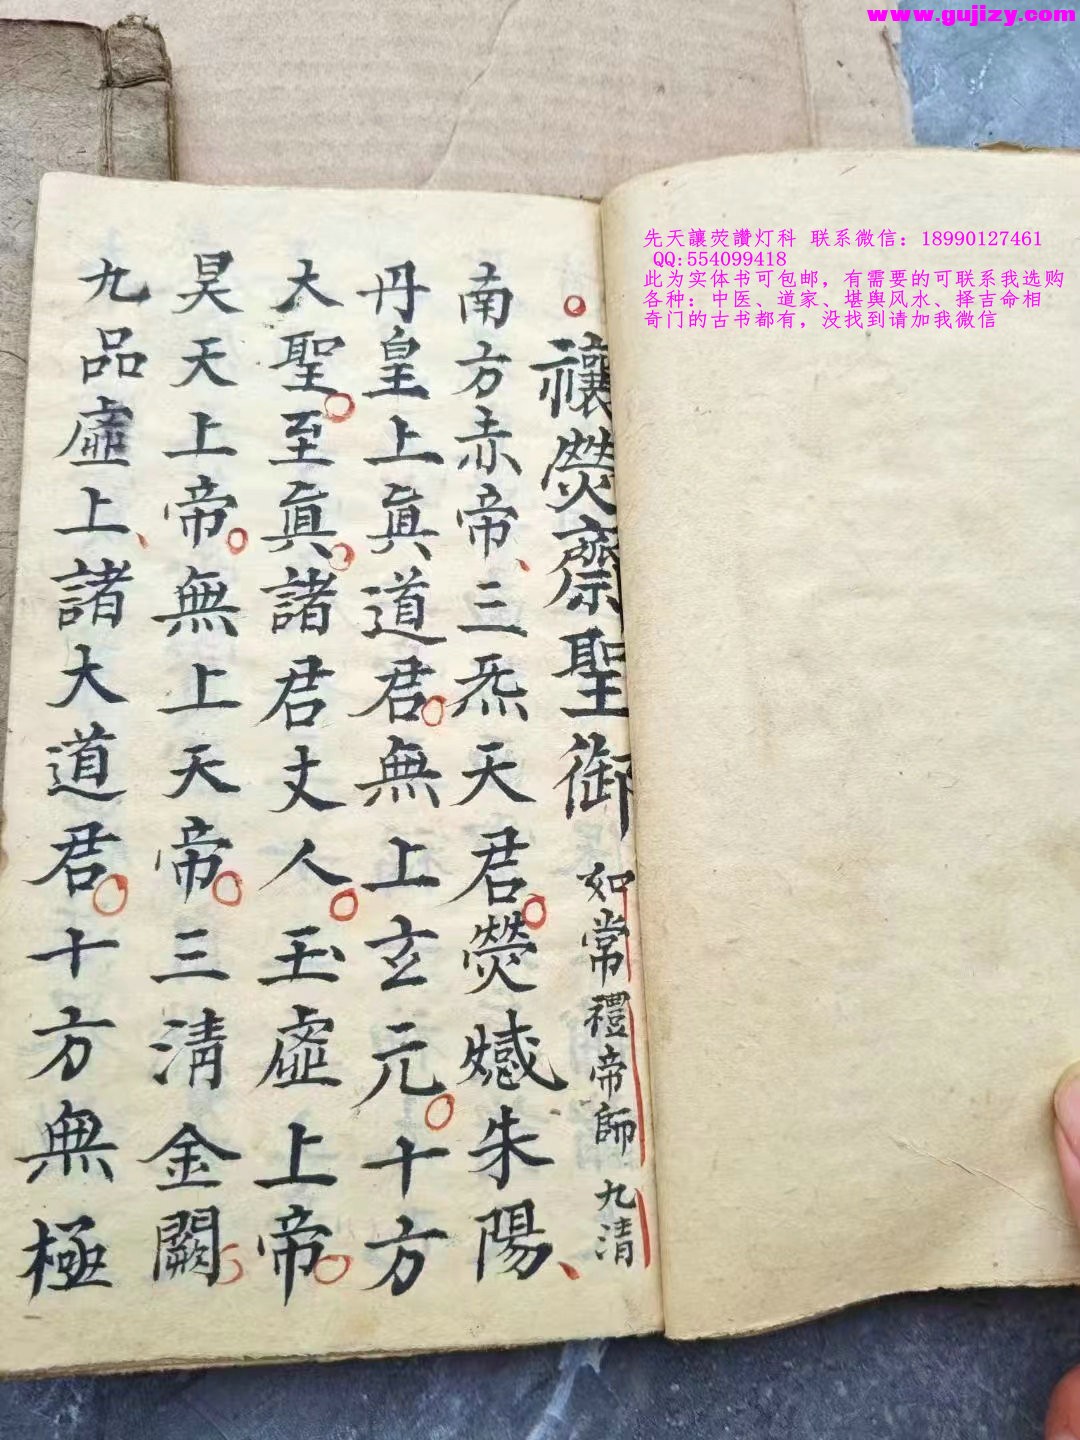 www.gujizy.com
先天讓荧讚灯科 联系微信：18990127461
QQ:554099418
此为实体书可包邮，有需要的可联系我选购
各种：中医、道家、堪舆风水、择吉命相
奇门的古书都有，没找到请加我微信
禳熒齋聖御 如常禮帝師 九清
南方赤帝、三炁天君熒㦧朱陽、
丹皇上眞道君無上玄元十方
大聖至眞諸君丈人玉虛上帝
昊天上帝無上天帝三清金闕
九品虛上、諸大道君十方無極